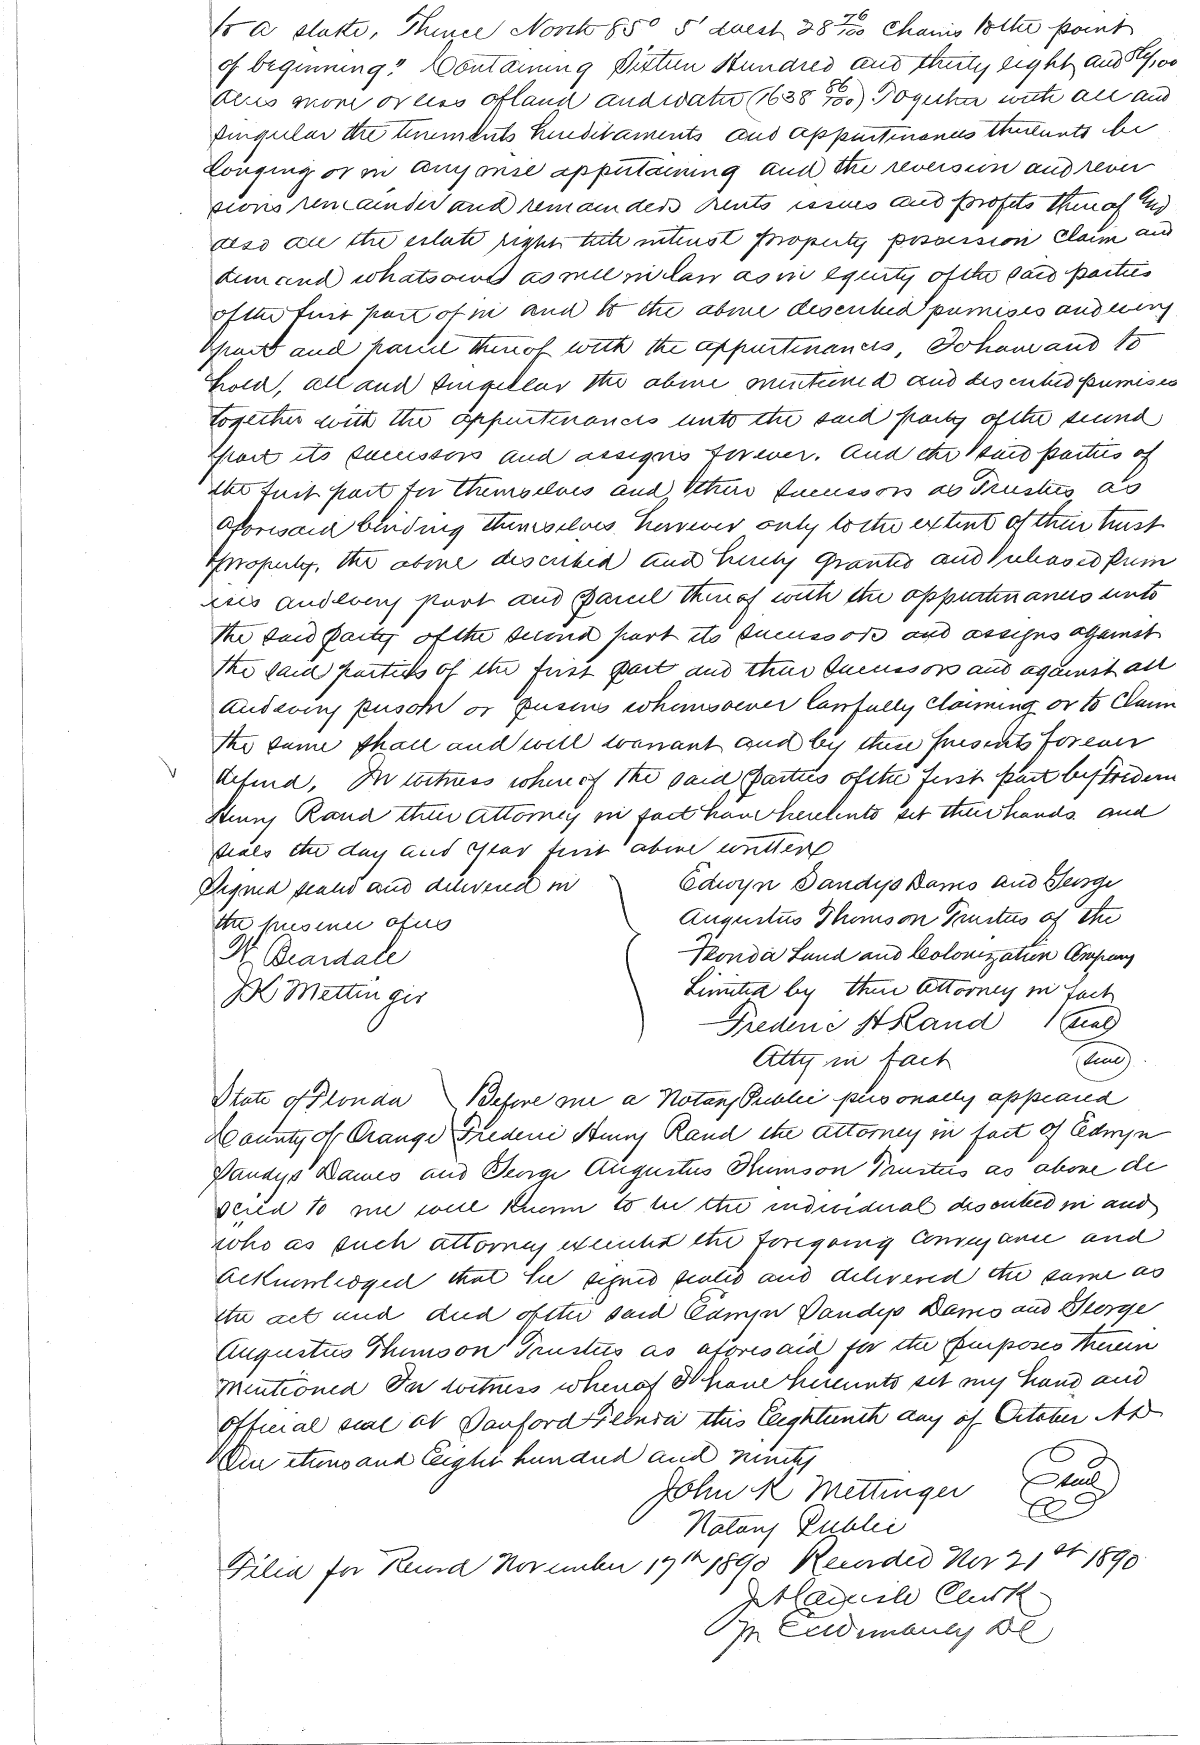 to a stake, Thence North 85° 5' West 28 76/100 Chains to the point
of beginning." Containing Sixteen Hundred and thirty eight and 86/100
acres more or less of land and water (1638 86/100) Together with all and
singular the tenements hereditaments and appurtinances thereunto be
longing or in anywise appertaining and the reversion and rever
sions remainder and remainders rents issues and profits thereof And
also all the estate right title interest property possession claim and
demand whatsoever as well in law as in equity of the said parties
of the first part of in and to the above described premises and every
part and parcel thereof with the appurtinances, To have and to
hold, all and singular the above mentioned and described premises
together with the appurtinances unto the said party of the second
part its successors and assigns forever. And the said parties of
the first part for themselves and their successors as Trustees as
aforesaid binding themselves however only to the extent of their trust
property, the above described and hereby granted and released prem
ises and every part and parcel thereof with the appurtinances unto
the said party of the second part its successors and assigns against
the said parties of the first part and their successors and against all
and every person or persons whomsoever lawfully claiming or to claim
the same shall and will warrant and by these presents forever
defend. In witness whereof the said parties of the first part by Frederic
Henry Rand their attorney in fact have hereunto set their hands and
seals the day and year first above written
Signed sealed and delivered in
the presence of us
W Beardale
JK Mettinger
Edwyn Sandys Dawes and George
Augustus Thomson Trustees of the
Florida Land and Colonization Company
Limited by their attorney in fact
Frederic H Rand (seal)
Atty in fact (seal)
State of Florida Before me a Notary Public personally appeared
County of Orange Frederic Henry Rand the attorney in fact of Edwyn
Sandys Dawes and George Augustus Thomson Trustees as above de
scried to me well known to be the individual described in and
who as such attorney executed the foregoing conveyance and
acknowledged that he signed sealed and delivered the same as
the act and deed of the said Edwyn Sandys Dawes and George
Augustus Thomson Trustees as aforesaid for the purposes therein
mentioned In witness whereof I have hereunto set my hand and
official seal at Sanford Florida this Eighteenth day of October AD
One thousand Eight hundred and ninety
John K Mettinger (seal)
Notary Public
Filed for Record November 17th 1890 Recorded Nov 21st 1890
Clerk
DC